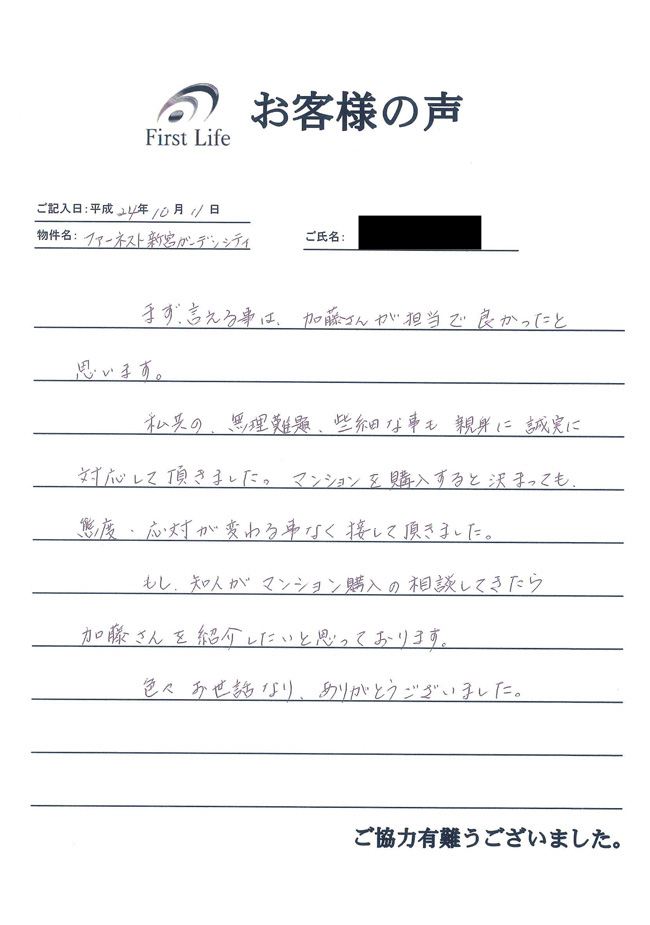 First Life
お客様の声
ご記入日:平成24年10月11日
物件名: ファーネスト新宮ガーデンシティ
ご氏名:
まず、言える事は、加藤さんが担当で良かったと
思います。
私共の、無理難題、些細な事も親身に誠実に
対応して頂きました。マンションを購入すると決まっても、
態度・応対が変わる事なく接して頂きました。
もし、知人がマンション購入の相談してきたら
加藤さんを紹介したいと思っております。
色々お世話なり、ありがとうございました。
ご協力有難うございました。